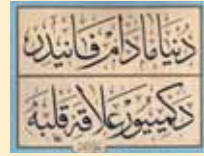 دنیا مادام فانیدر
دکمیور علاقه قلبه